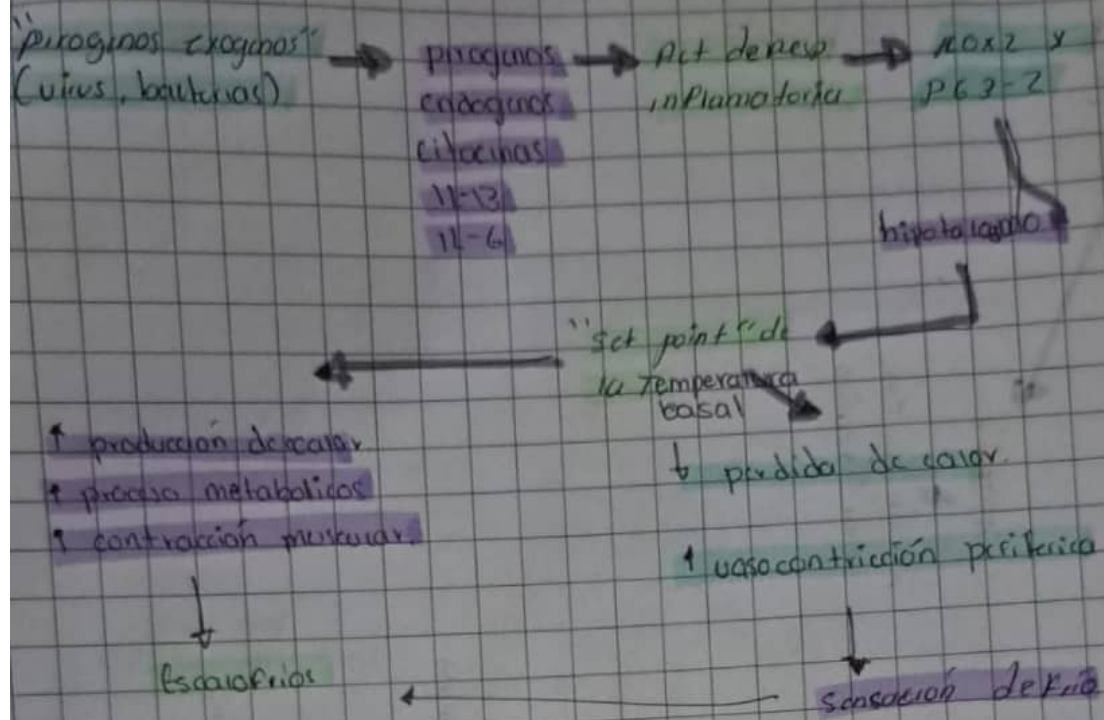 "piroginos exogenos"
(virus, bacterias)
pirogenos
endogenos
citocinas
11-13
1L-6
Act de resp
inflamatoria
NOX2 y
PG3-2
hipotalamo
"set point" de
la Temperatura
basal
↑ producción de calor
↑ proceso metabolicos
↑ contracción muscular
Escalofrios
↓ perdida de calor
↑ vasocontricción periferica
sensación de Frio